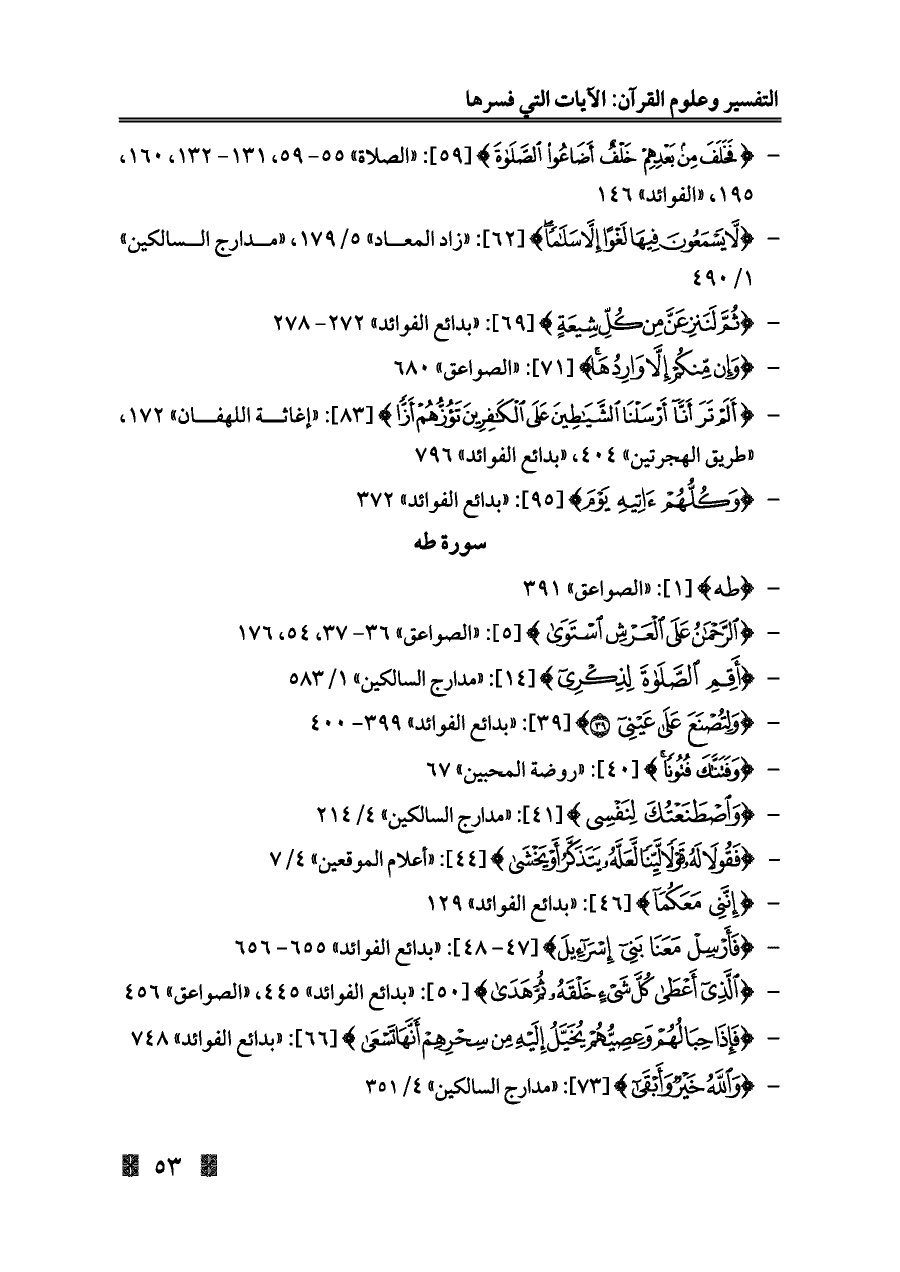 التفسير وعلوم القرآن: الآيات التي فسرها
- ﴿فَخَلَفَ مِنۢ بَعۡدِهِمۡ خَلۡفٌ أَضَاعُواْ ٱلصَّلَوٰةَ﴾ [٥٩]: «الصلاة» ٥٥- ٥٩، ١٣١- ١٣٢، ١٦٠،
١٩٥، «الفوائد» ١٤٦
- ﴿لَّا يَسۡمَعُونَ فِيهَا لَغۡوًا إِلَّا سَلَٰمٗاۖ﴾ [٦٢]: «زاد المعـاد» ٥/ ١٧٩، «مـدارج الـسالكين»
١/ ٤٩٠
- ﴿ثُمَّ لَنَنزِعَنَّ مِن كُلِّ شِيعَةٍ﴾ [٦٩]: «بدائع الفوائد» ٢٧٢- ٢٧٨
- ﴿وَإِن مِّنكُمۡ إِلَّا وَارِدُهَاۚ﴾ [٧١]: «الصواعق» ٦٨٠
- ﴿أَلَمۡ تَرَ أَنَّآ أَرۡسَلۡنَا ٱلشَّيَٰطِينَ عَلَى ٱلۡكَٰفِرِينَ تَؤُزُّهُمۡ أَزّٗا﴾ [٨٣]: «إغاثـة اللهفـان» ١٧٢،
«طريق الهجرتين» ٤٠٤، «بدائع الفوائد» ٧٩٦
- ﴿وَكُلُّهُمۡ ءَاتِيهِ يَوۡمَ﴾ [٩٥]: «بدائع الفوائد» ٣٧٢
سورة طه
- ﴿طه﴾ [١]: «الصواعق» ٣٩١
- ﴿ٱلرَّحۡمَٰنُ عَلَى ٱلۡعَرۡشِ ٱسۡتَوَىٰ﴾ [٥]: «الصواعق» ٣٦- ٣٧، ٥٤، ١٧٦
- ﴿أَقِمِ ٱلصَّلَوٰةَ لِذِكۡرِيٓ﴾ [١٤]: «مدارج السالكين» ١/ ٥٨٣
- ﴿وَلِتُصۡنَعَ عَلَىٰ عَيۡنِيٓ ٣٩﴾ [٣٩]: «بدائع الفوائد» ٣٩٩- ٤٠٠
- ﴿وَفَتَنَّٰكَ فُتُونٗاۚ﴾ [٤٠]: «روضة المحبين» ٦٧
- ﴿وَٱصۡطَنَعۡتُكَ لِنَفۡسِي﴾ [٤١]: «مدارج السالكين» ٤/ ٢١٤
- ﴿فَقُولَا لَهُۥ قَوۡلٗا لَّيِّنٗا لَّعَلَّهُۥ يَتَذَكَّرُ أَوۡ يَخۡشَىٰ﴾ [٤٤]: «أعلام الموقعين» ٤/ ٧
- ﴿إِنَّنِي مَعَكُمَآ﴾ [٤٦]: «بدائع الفوائد» ١٢٩
- ﴿فَأَرۡسِلۡ مَعَنَا بَنِيٓ إِسۡرَٰٓءِيلَ﴾ [٤٧- ٤٨]: «بدائع الفوائد» ٦٥٥- ٦٥٦
- ﴿ٱلَّذِيٓ أَعۡطَىٰ كُلَّ شَيۡءٍ خَلۡقَهُۥ ثُمَّ هَدَىٰ﴾ [٥٠]: «بدائع الفوائد» ٤٤٥، «الصواعق» ٤٥٦
- ﴿فَإِذَا حِبَالُهُمۡ وَعِصِيُّهُمۡ يُخَيَّلُ إِلَيۡهِ مِن سِحۡرِهِمۡ أَنَّهَا تَسۡعَىٰ﴾ [٦٦]: «بدائع الفوائد» ٧٤٨
- ﴿وَٱللَّهُ خَيۡرٞ وَأَبۡقَىٰٓ﴾ [٧٣]: «مدارج السالكين» ٤/ ٣٥١
٥٣